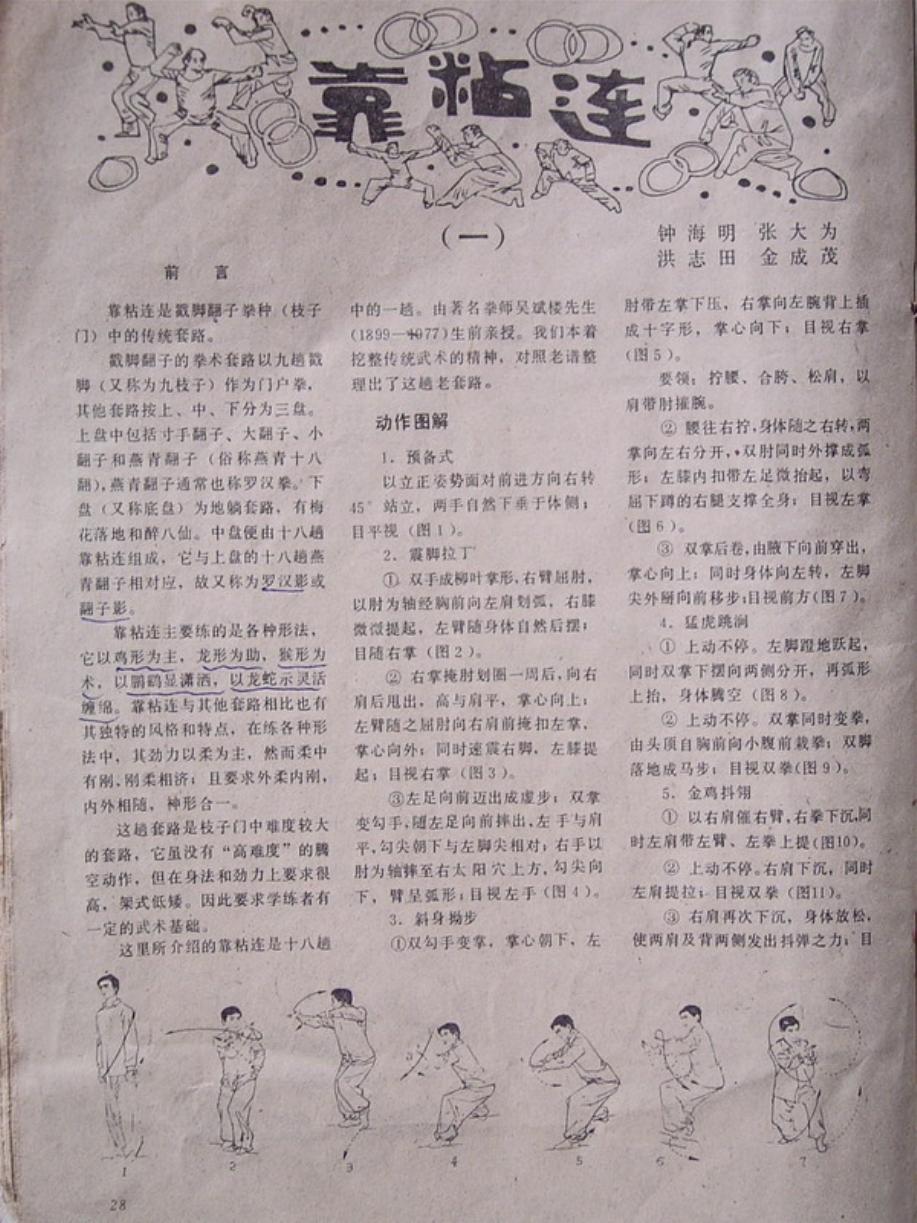 靠粘连
(一)
钟海明 张大为
洪志田 金成茂
前 言
靠粘连是戳脚翻子拳种（枝子
门）中的传统套路。
戳脚翻子的拳术套路以九趟戳
脚（又称为九枝子）作为门户拳，
其他套路按上、中、下分为三盘。
上盘中包括寸手翻子、大翻子、小
翻子和燕青翻子（俗称燕青十八
翻），燕青翻子通常也称罗汉拳。下
盘（又称底盘）为地躺套路，有梅
花落地和醉八仙。中盘便由十八趟
靠粘连组成，它与上盘的十八趟燕
青翻子相对应，故又称为罗汉影或
翻子影。
靠粘连主要练的是各种形法，
它以鸡形为主，龙形为助，猴形为
术，以鹏鹞显潇洒，以龙蛇示灵活
缠绵。靠粘连与其他套路相比也有
其独特的风格和特点，在练各种形
法中，其劲力以柔为主，然而柔中
有刚，刚柔相济；且要求外柔内刚，
内外相随，神形合一。
这趟套路是枝子门中难度较大
的套路，它虽没有“高难度”的腾
空动作，但在身法和劲力上要求很
高，架式低矮。因此要求学练者有
一定的武术基础。
这里所介绍的靠粘连是十八趟
中的一趟。由著名拳师吴斌楼先生
(1899—1977)生前亲授。我们本着
挖整传统武术的精神，对照老谱整
理出了这趟老套路。
动作图解
1．预备式
以立正姿势面对前进方向右转
45°站立，两手自然下垂于体侧；
目平视（图1）。
2．震脚拉丁
① 双手成柳叶掌形，右臂屈肘，
以肘为轴经胸前向左肩划弧，右膝
微微提起，左臂随身体自然后摆；
目随右掌（图2）。
② 右掌掩肘划圈一周后，向右
肩后甩出，高与肩平，掌心向上；
左臂随之屈肘向右肩前掩扣左掌，
掌心向外；同时速震右脚，左膝提
起；目视右掌（图3）。
③左足向前迈出成虚步；双掌
变勾手，随左足向前摔出，左手与肩
平，勾尖朝下与左脚尖相对；右手以
肘为轴摔至右太阳穴上方，勾尖向
下，臂呈弧形；目视左手（图4）。
3．斜身拗步
①双勾手变掌，掌心朝下，左
肘带左掌下压，右掌向左腕背上插
成十字形，掌心向下；目视右掌
(图5)。
要领：拧腰、合胯、松肩，以
肩带肘摧腕。
② 腰往右拧，身体随之右转，两
掌向左右分开，双肘同时外撑成弧
形；左膝内扣带左足微抬起，以弯
屈下蹲的右腿支撑全身；目视左掌
(图6)。
③ 双掌后卷，由腋下向前穿出，
掌心向上；同时身体向左转，左脚
尖外掰向前移步；目视前方(图7)。
4．猛虎跳涧
① 上动不停。左脚蹬地跃起，
同时双掌下摆向两侧分开，再弧形
上抬，身体腾空（图8）。
② 上动不停。双掌同时变拳，
由头顶自胸前向小腹前栽拳；双脚
落地成马步；目视双拳(图9)。
5．金鸡抖翎
① 以右肩催右臂，右拳下沉，同
时左肩带左臂、左拳上提(图10)。
② 上动不停。右肩下沉，同时
左肩提拉；目视双拳（图11)。
③ 右肩再次下沉，身体放松，
使两肩及背两侧发出抖弹之力；目
1 2 3 4 5 6 7
28